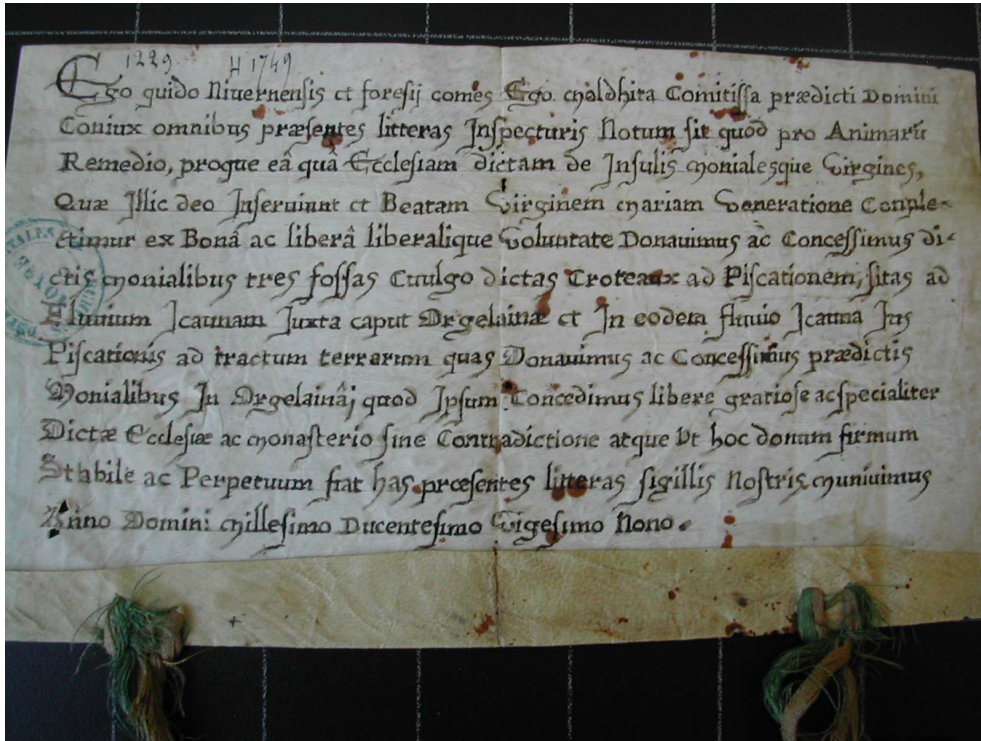 1229 H 1749
Ego guido Niuernensis et foresij comes Ego. Maldhita Comitissa prædicti Domini
Coniux omnibus præsentes litteras Inspecturis Notum sit quòd pro Animarū
Remedio, proque eâ quâ Ecclesiam dictam de Insulis Monialesque Virgines,
Quæ Illic deo Inseruiunt et Beatam Virginem Mariam Veneratione Conple-
ctimur ex Bonâ ac liberâ liberalique Voluntate Donauimus ac Concessimus di-
ctis Monialibus tres fossas Vulgo dictas Croteaux ad Piscationem, sitas ad
Fluuium Icaunam Juxta caput Orgelainæ et In eodem fluuio Icauna Jus
Piscationis ad tractum terrarum quas Donauimus ac Concessimus prædictis
Monialibus In Orgelainâ; quod Ipsum Concedimus libere gratiose ac specialiter
Dictæ Ecclesiæ ac Monasterio sine Contradictione atque Vt hoc donum firmum
Stabile ac Perpetuum fiat has præsentes litteras sigillis Nostris Muniuimus
Anno Domini Millesimo Ducentesimo Vigesimo Nono.